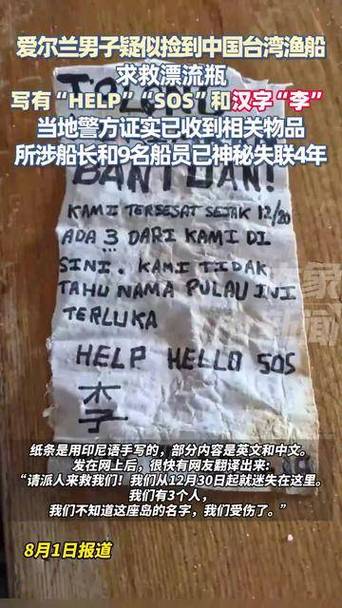 爱尔兰男子疑似捡到中国台湾渔船
求救漂流瓶
写有“HELP”“SOS”和汉字“李”
当地警方证实已收到相关物品
所涉船长和9名船员已神秘失联4年
BANTUAN!
KAMI TERSESAT SEJAK 12/20
ADA 3 DARI KAMI DI
SINI. KAMI TIDAK
TAHU NAMA PULAU INI
TERLUKA
HELP HELLO SOS
李
纸条是用印尼语手写的，部分内容是英文和中文。
发在网上后，很快有网友翻译出来：
“请派人来救我们！我们从12月30日起就迷失在这里。
我们有3个人，
我们不知道这座岛的名字，我们受伤了。”
8月1日报道